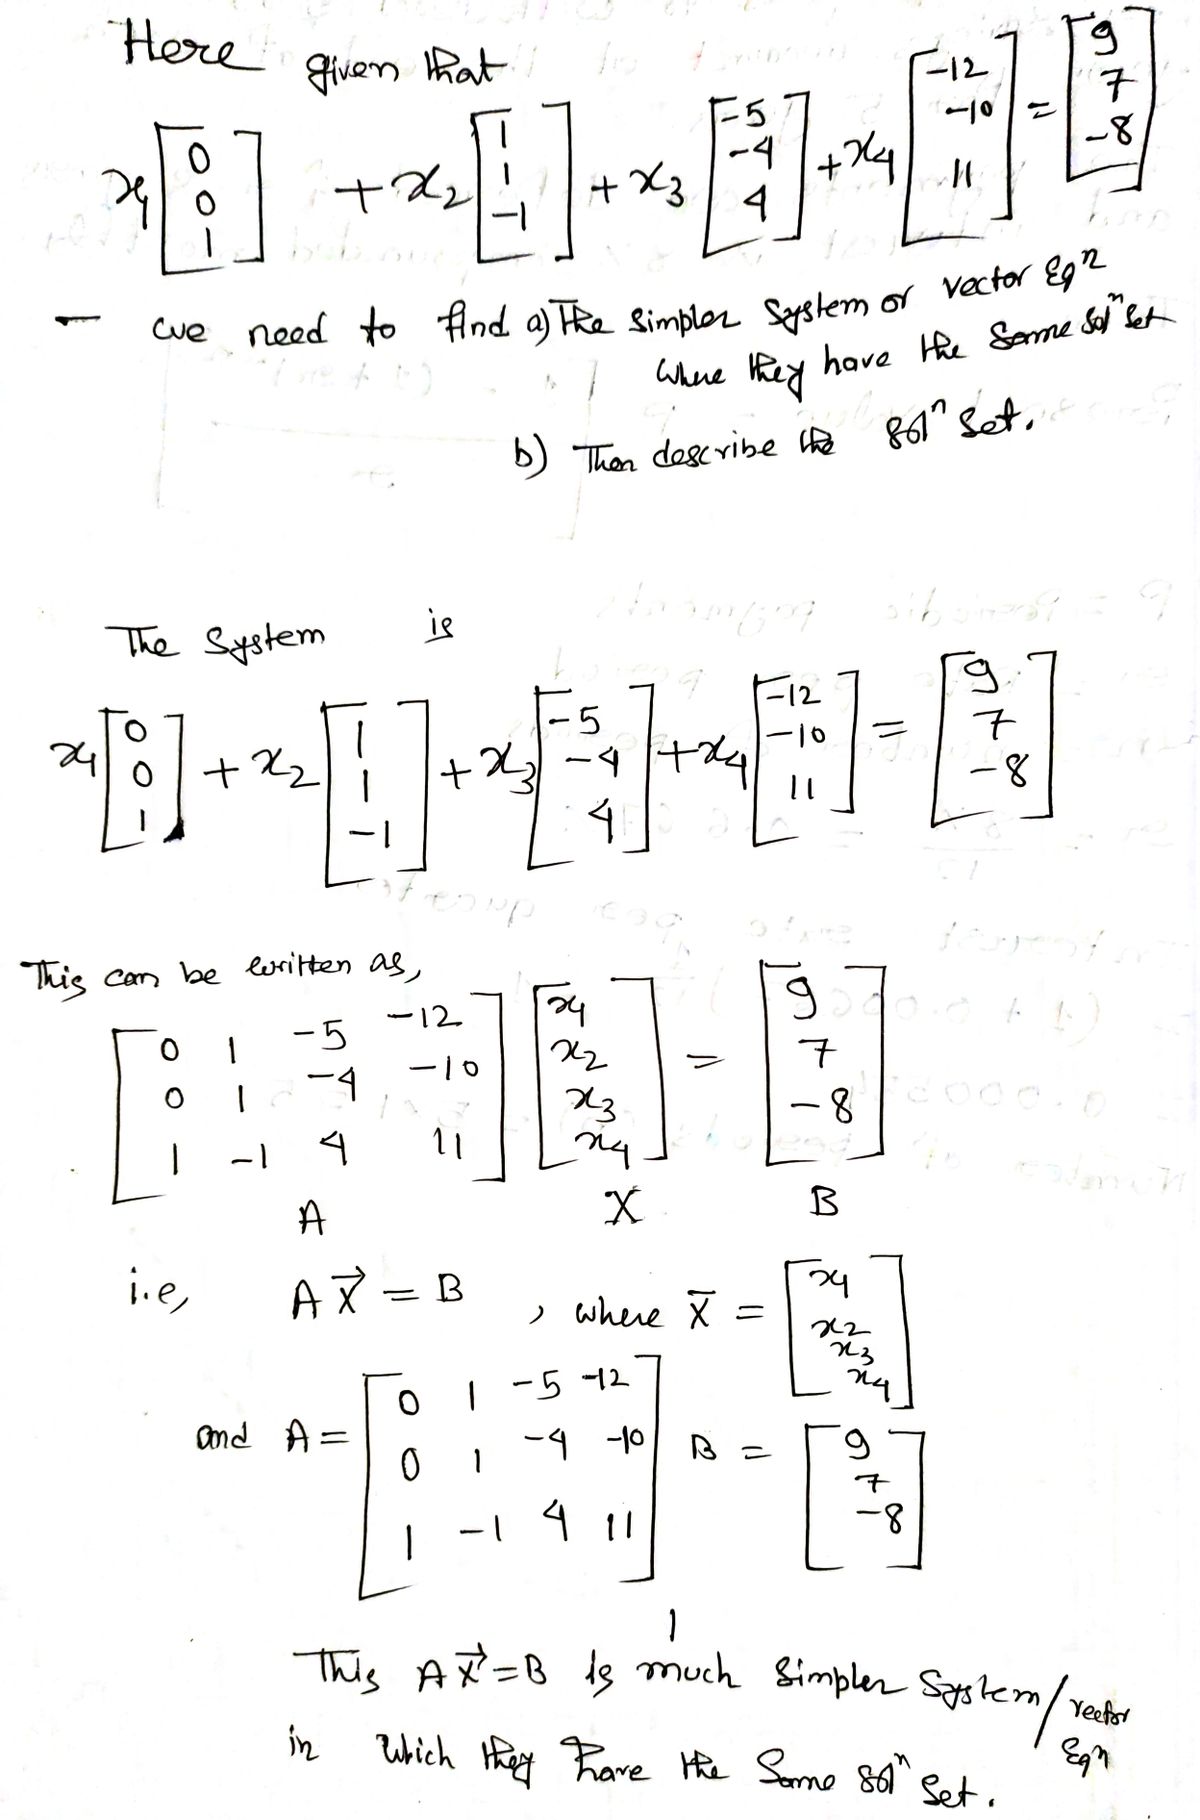 Here given that
x1 [0 0 1] + x2 [1 1 -1] + x3 [-5 -4 4] + x4 [-12 -10 11] = [9 7 -8]
- we need to find a) The simpler system or vector Eqn
where they have the same soln set
b) Then describe the soln set.
The system is
x1 [0 0 1] + x2 [1 1 -1] + x3 [-5 -4 4] + x4 [-12 -10 11] = [9 7 -8]
This can be written as,
0 1 -5 -12 x1 9
0 1 -4 -10 x2 = 7
1 -1 4 11 x3 -8
x4
A X B
i.e, A X⃗ = B , where X̄ = [x1 x2 x3 x4]
0 1 -5 -12 9
and A = 0 1 -4 -10 B = 7
1 -1 4 11 -8
1
This A X⃗ = B is much simpler system/vector Eqn
in which they have the same soln set.